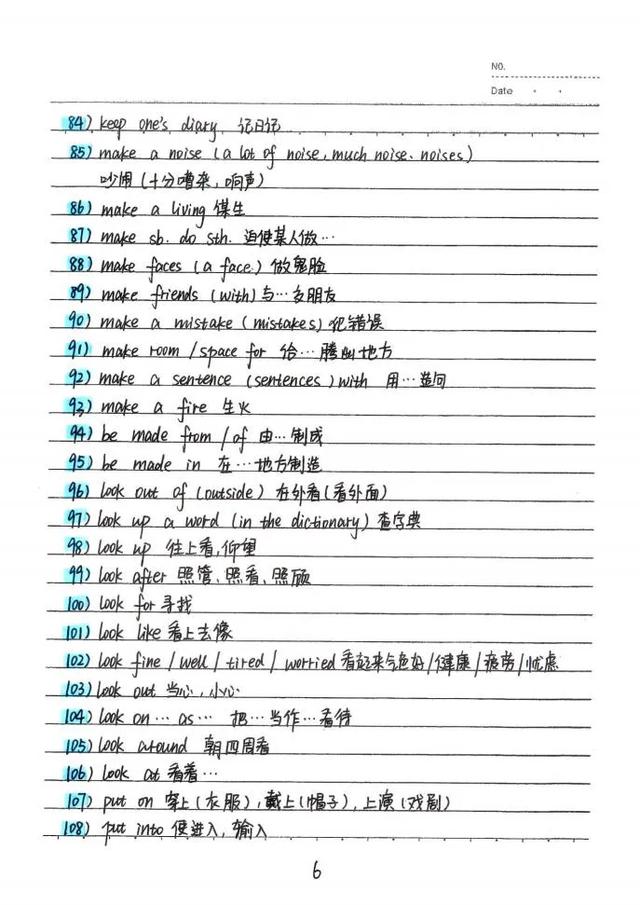 NO.
Date · ·
84) keep one's diary 记日记
85) make a noise (a lot of noise, much noise、noises)
吵闹(十分嘈杂,响声)
86) make a living 谋生
87) make sb. do sth. 迫使某人做…
88) make faces (a face) 做鬼脸
89) make friends (with) 与…交朋友
90) make a mistake (mistakes) 犯错误
91) make room / space for 给…腾出地方
92) make a sentence (sentences) with 用…造句
93) make a fire 生火
94) be made from / of 由…制成
95) be made in 在…地方制造
96) look out of (outside) 在外看(看外面)
97) look up a word (in the dictionary) 查字典
98) look up 往上看,仰望
99) look after 照管、照看、照顾
100) look for 寻找
101) look like 看上去像
102) look fine / well / tired / worried 看起来气色好/健康/疲劳/忧虑
103) look out 当心,小心
104) look on … as … 把…当作…看待
105) look around 朝四周看
106) look at 看着…
107) put on 穿上(衣服),戴上(帽子),上演(戏剧)
108) put into 使进入,输入
6